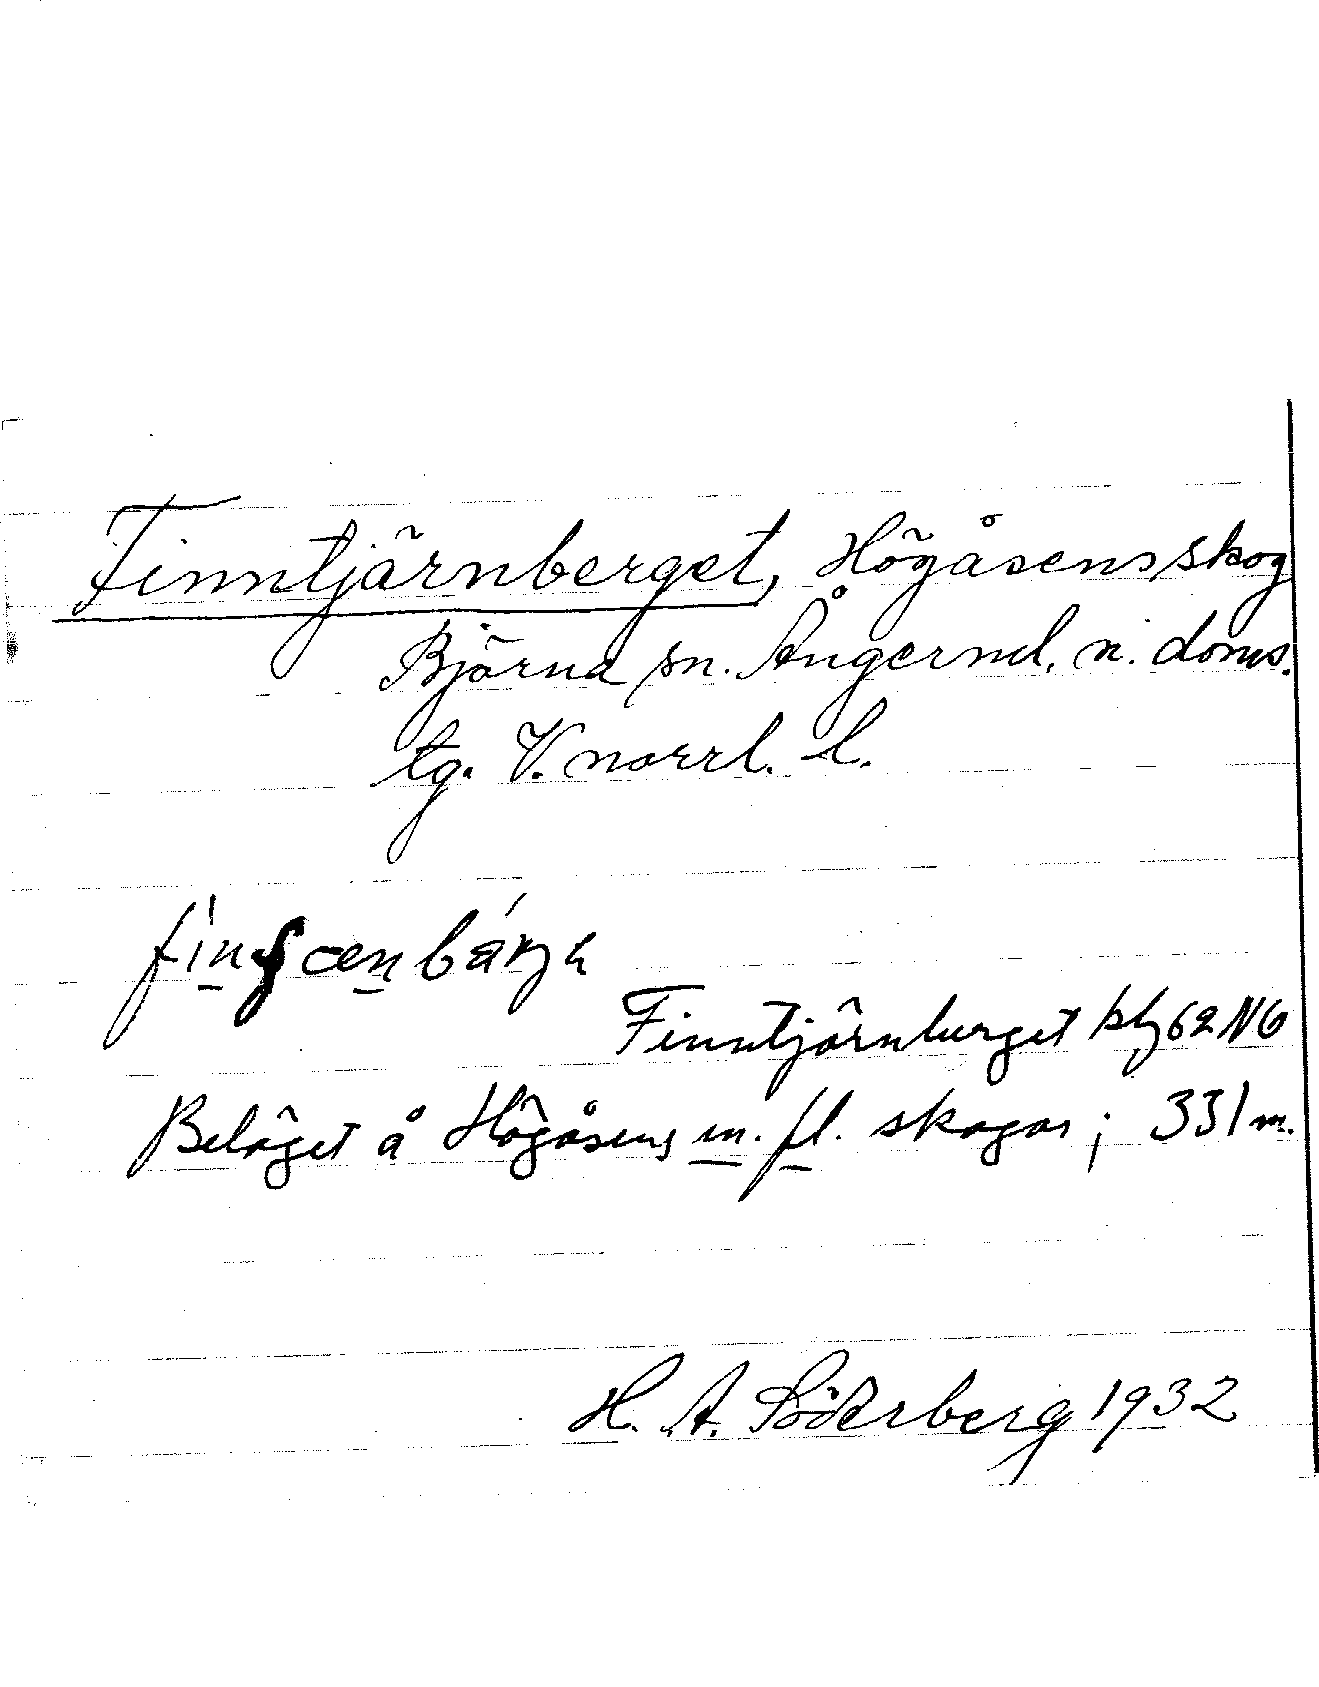 Finntjärnberget, Högåsens skog
Björna sn. Ångerml. n. doms.
tg. V. norrl. l.
Finntjärnberget kbl 62 NO
Beläget å Högåsens m. fl. skogar; 331 m.
H. A. Söderberg 1932